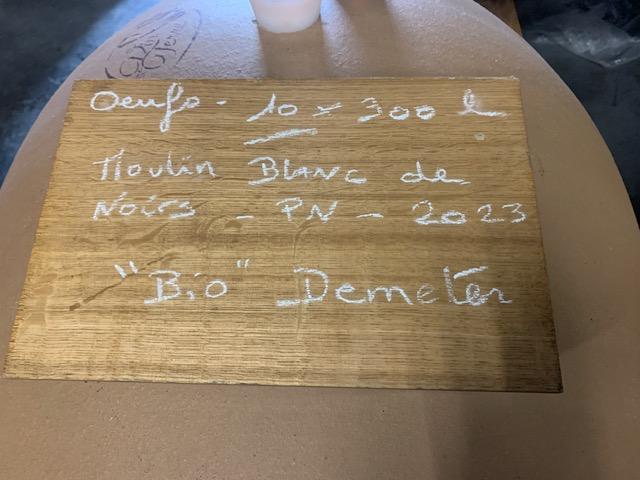 Oeufs - 10 x 300 l
Moulin Blanc de
Noirs - PN - 2023
"Bio" Demeter